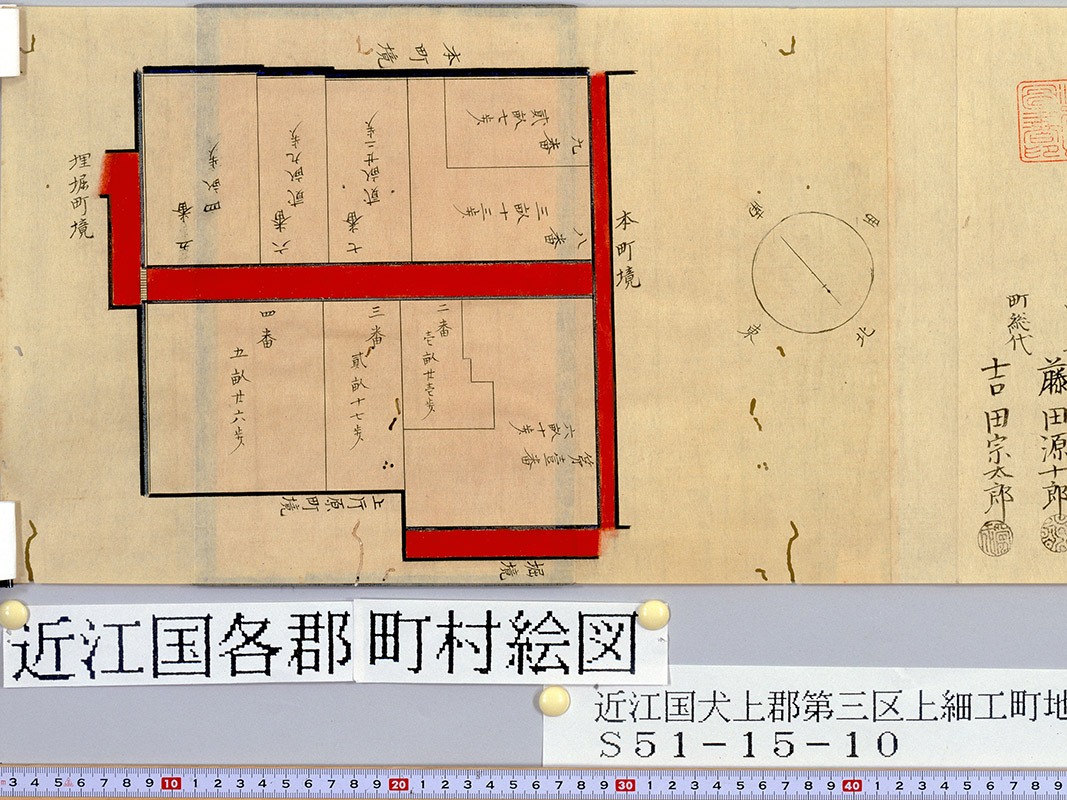 本町境
九番
貳畝七歩
八番
三畝十三歩
七番
貳畝廿二歩
六番
貳畝九歩
五番
四畝歩
埋堀町境
本町境
四番
五畝廿六歩
三番
貳畝十七歩
二番
壱畝廿壱歩
第壹番
六畝十歩
上片原町境
堀境
南
西
東
北
町総代
吉田宗太郎
藤田源十郎
近江国各郡町村絵図
近江国犬上郡第三区上細工町地
S51-15-10
3 4 5 6 7 8 9 10 1 2 3 4 5 6 7 8 9 20 1 2 3 4 5 6 7 8 9 30 1 2 3 4 5 6 7 8 9 40 1 2 3 4 5 6 7 8 9